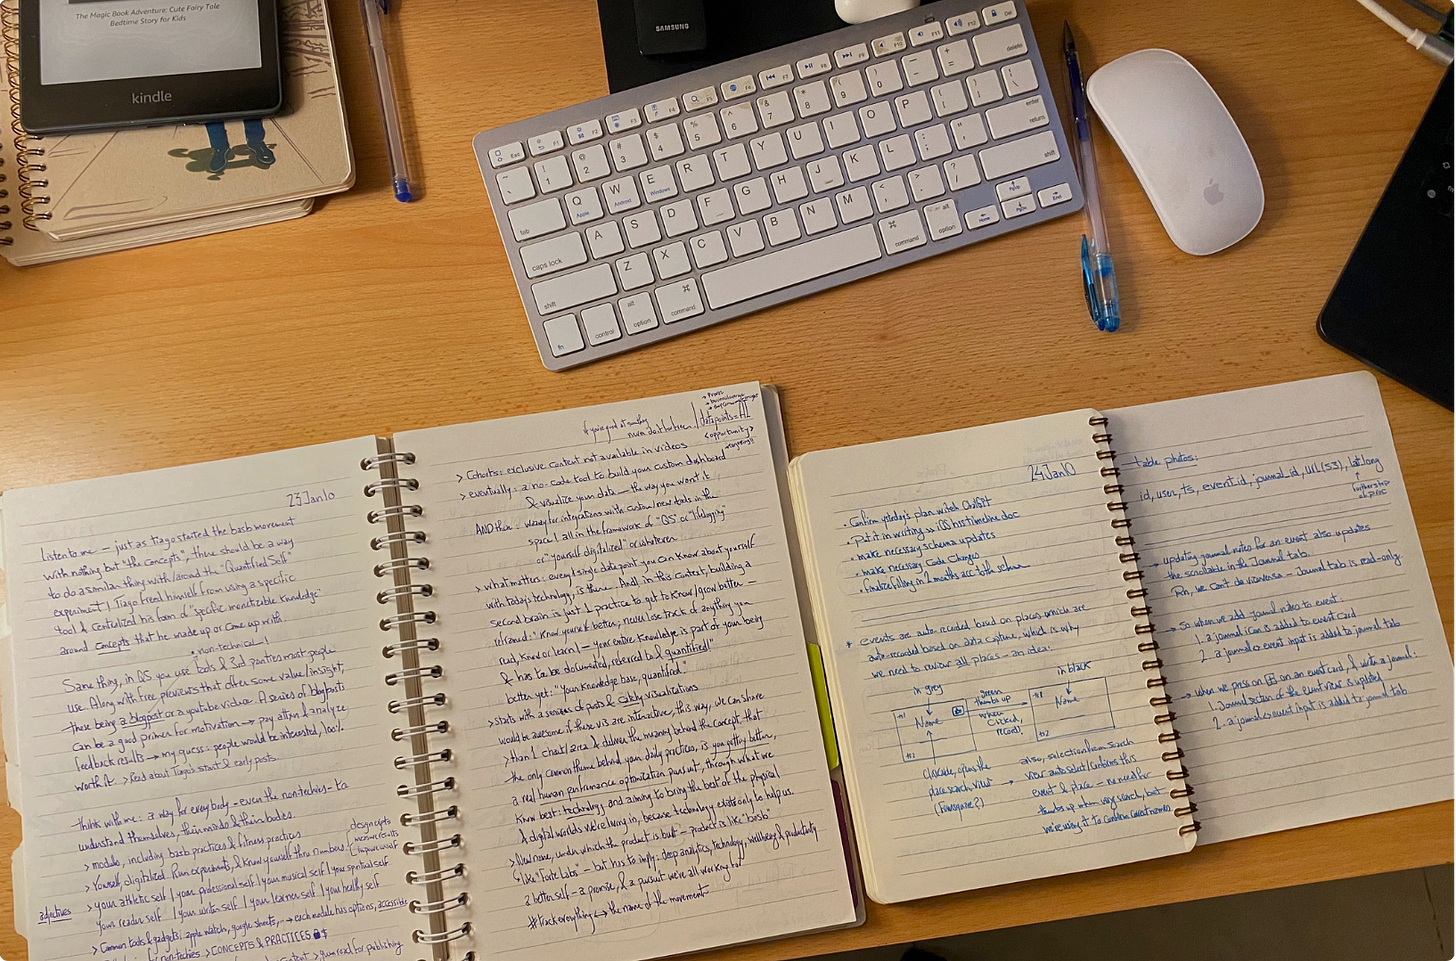 The Magic Book Adventure: Cute Fairy Tale
Bedtime Story for Kids
kindle
SAMSUNG
Esc F1 F2 F3 F4 F5 F6 F7 F8 F9 F10 F11 F12 Del
~ ` ! 1 @ 2 # 3 $ 4 % 5 ^ 6 & 7 * 8 ( 9 ) 0 _ - + = delete
tab Q Apple W Android E Windows R T Y U I O P { [ } ] | \
caps lock A S D F G H J K L : ; " ' enter return
shift Z X C V B N M < , > . ? / shift
fn control alt option ⌘ command ⌘ command alt option Home PgUp PgDn End
23 Jan 10
listen to me — just as Tiago started the basb movement
with nothing but "the concepts", there should be a way
to do a similar thing with/around the "Quantified Self"
experiment! Tiago freed himself from using a specific
tool & centralized his form of "specific monetizable knowledge"
around concepts that he made up or came up with.
non-technical!
Same thing, in QS you use tools & 3rd parties most people
use. Along with free previews that offer some value/insight,
these being a blogpost or a youtube video. A series of blogposts
can be a good primer for motivation → pay attn & analyze
feedback results → my guess: people would be interested, 100%
worth it. > Read about Tiago's start & early posts.
Think with me: a way for everybody - even the non-techies - to
understand themselves, their minds & their bodies.
> module, including basb practices & fitness practices
> Yourself, digitalized. Run experiments, & know yourself thru numbers
design expts
measure results
adjectives
> your athletic self | your professional self | your musical self | your spiritual self
your reader self | your writer self | your learner self | your healthy self
> Common tools & gadgets: apple watch, google sheets, → each module has options, accessible
non-techies > CONCEPTS & PRACTICES
if you're good at something
datapoints = ALL
<opportunity>
> Cohorts: exclusive content not available in videos
> eventually: a no-code tool to build your custom dashboard
& visualize your data — the way you want it
AND then: way for integrations with custom/new tools in the
space | all in the framework of "QS or "lifelogging"
or "yourself digitalized" or whatever
> what matters: every single datapoint you can know about yourself
with today's technology, is there. And, in this context, building a
second brain is just 1 practice to get to know/grow better —
reframed: "know yourself better, never lose track of anything you
read, know or learn! — your entire knowledge is part of your being
& has to be documented, referred to & quantified!"
better yet: "Your knowledge base, quantified."
> starts with a series of posts & catchy visualizations
would be awesome if those vis are interactive, this way, we can share
> than 1 chart/area & deliver the meaning behind the concept, that
the only common theme behind your daily practices, is you getting better,
a real human performance optimization pursuit, through what we
know best: technology, and aiming to bring the best of the physical
& digital worlds we're living in, because technology exists only to help us.
> New name, under which the product is built — product is like "basb"
↳ like "Forte Labs" — but has to imply: deep analytics, technology, wellbeing & productivity
a better self — a promise, & a pursuit we're all working for
#trackeverything ↔ the name of the movement
24 Jan 10
• Confirm ystrday's plan with ChatGPT
• Put it in writing in iOS hrs timeline doc
• make necessary schema updates
• make necessary Code Changes
* events are auto-recorded based on places which are
auto-recorded based on data capture, which is why
we need to review all places — an idea:
in grey
Name
green
thumbs up
when
clicked,
record
in black
Name
clickable, opens the
place search view
(Foursquare?)
also, selection from search
view auto select/confirms this
event & place — no need for
thumbs up when using search, but
we're using it to confirm correctness
table photos:
id, user, ts, event_id, journal_id, URL(S3), lat, long
→ updating journal notes for an event also updates
the scrollable in the Journal tab.
Rn, we can't do viceversa — Journal tab is read-only.
→ so when we add journal video to event:
1. a journal icon is added to event card
2. a journal event input is added to journal tab
→ when we press on + on an event card, & write a journal:
1. Journal section of the event view is updated
2. a journal event input is added to journal tab